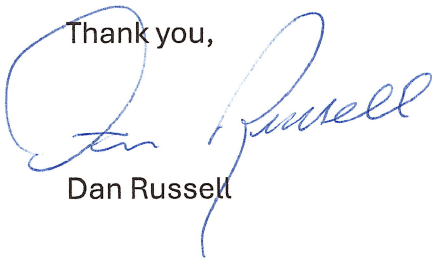 Thank you,
Dan Russell
Dan Russell